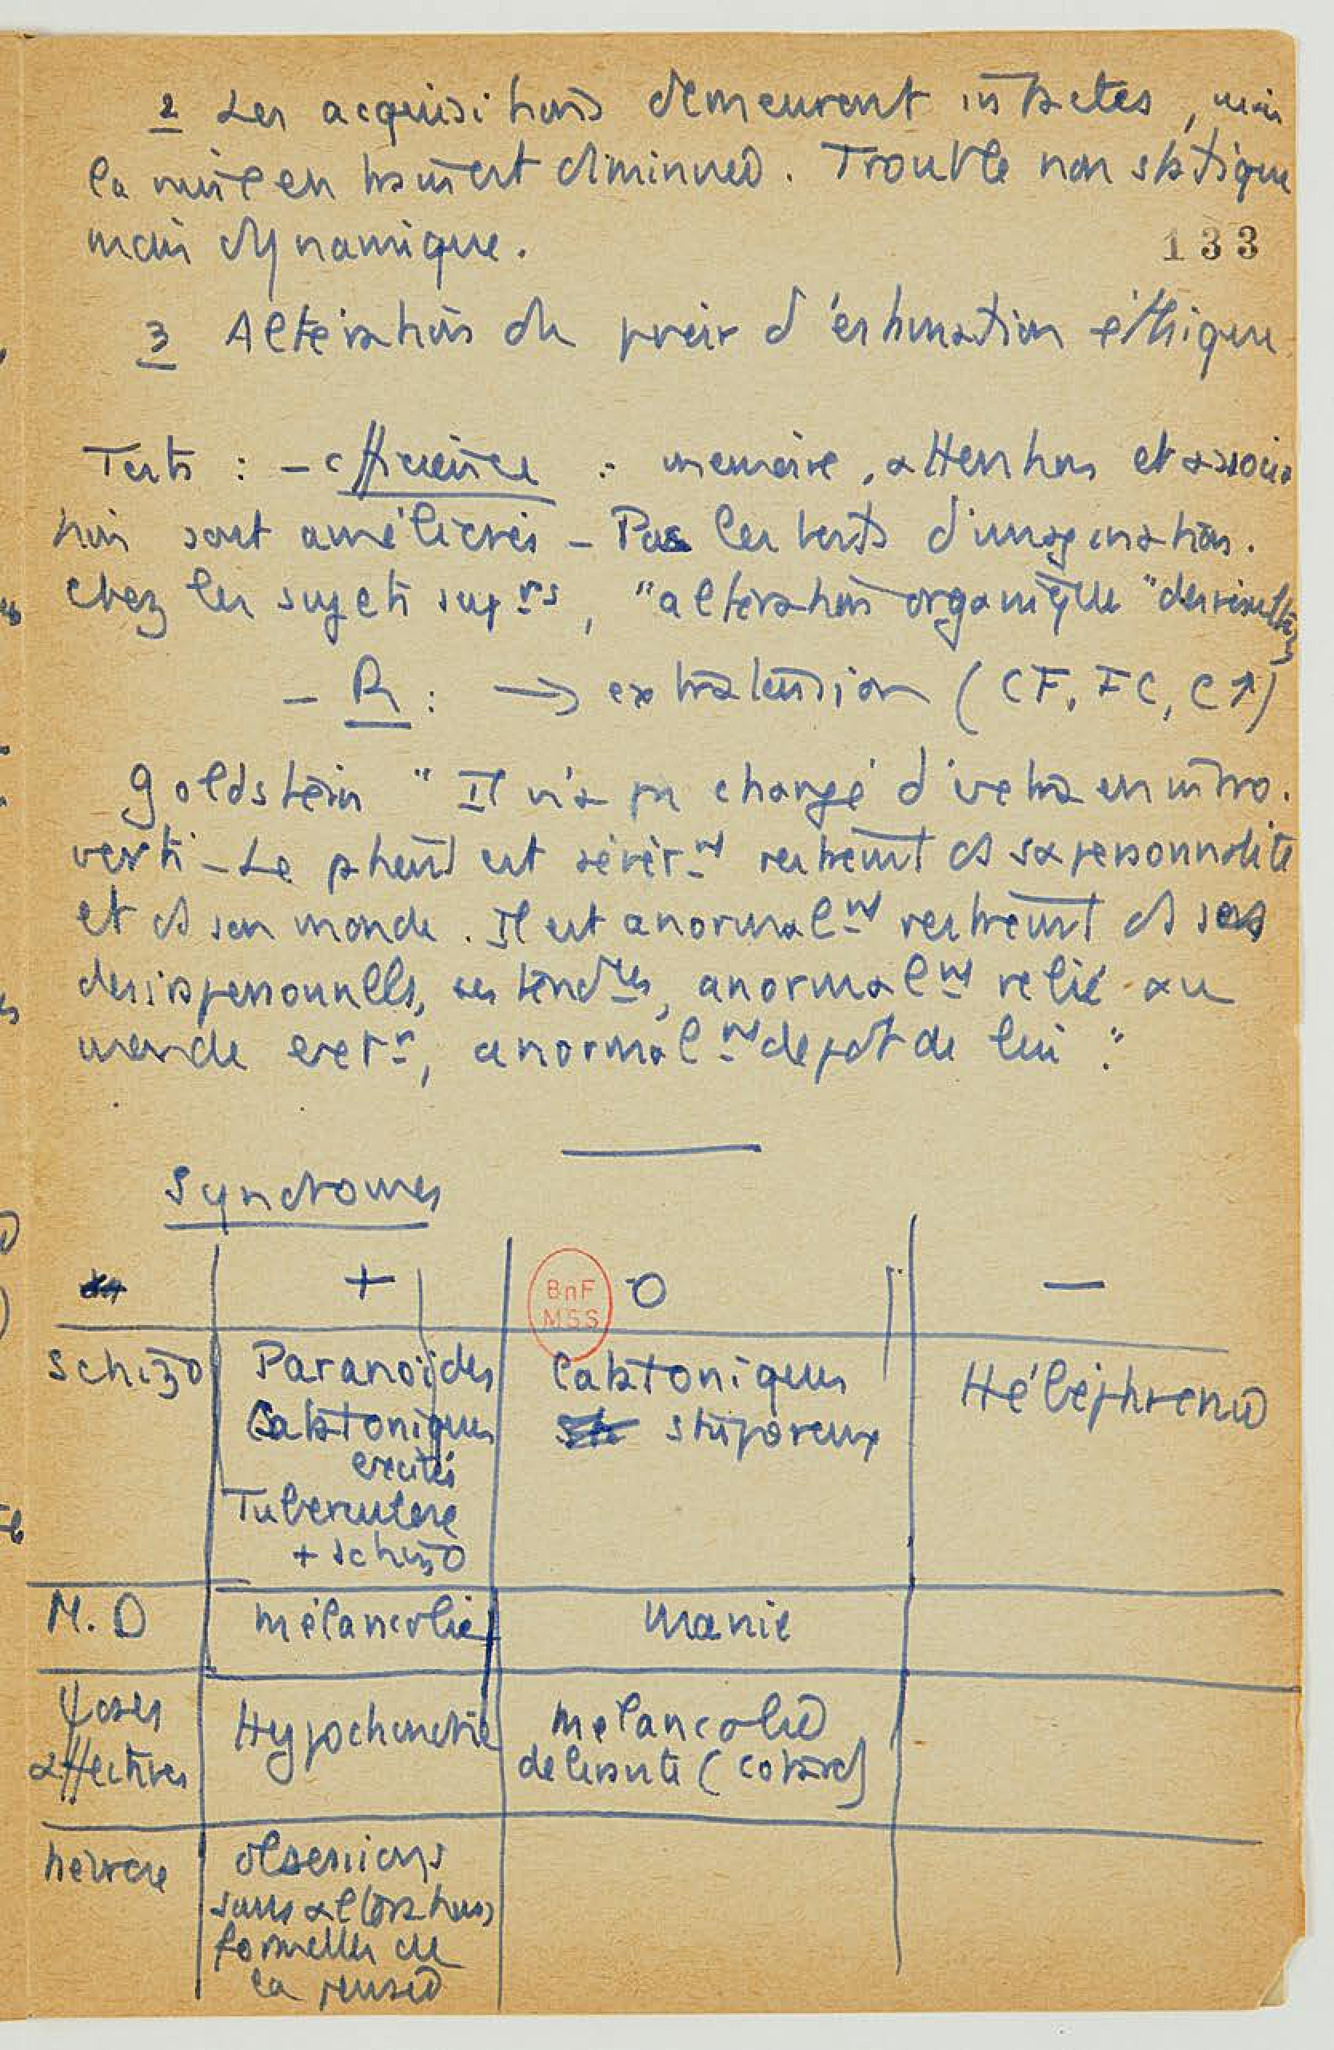 2 Les acquisitions demeurent intactes, mais
la mise en train est diminuée. Trouble non statique
mais dynamique.
133
3 Altération du pouvoir d'estimation éthique
Tests : - efficience : mémoire, attention et associa
tion sont améliorés - Pas les tests d'imagination.
Chez les sujets suprs, "altération organique" des résultats
- R : → extratension (CF, FC, C↑)
Goldstein "Il n'a pas changé d'extra en intro.
verti - Le patient est sévèrnt restreint ds sa personnalité
et ds son monde. Il est anormalnt restreint ds ses
désirs personnels, ses tendces, anormalnt relié au
monde extr, anormalnt de lui".
Syndromes
+ 0 −
BnF
MSS
Schizo Paranoïdes Catatoniques Hébéphrénie
Catatoniques stuporeux
excités
Tuberculose
+ schizo
M.D mélancolie manie
ψoses Hypochondrie mélancolie
affectives délirante (Cotard)
névrose obsessions
sans altérations
formelles de
la pensée